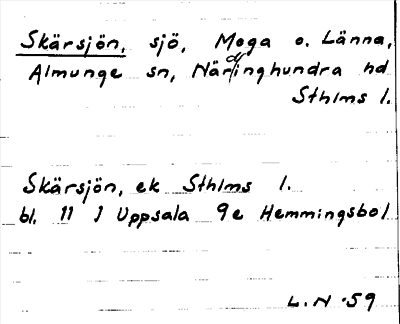 Skärsjön, sjö, Moga o. Länna,
Almunge sn, Närdinghundra hd
Sthlms l.
Skärsjön, ek Sthlms l.
bl. 11 J Uppsala 9e Hemmingsbol
L.N -59